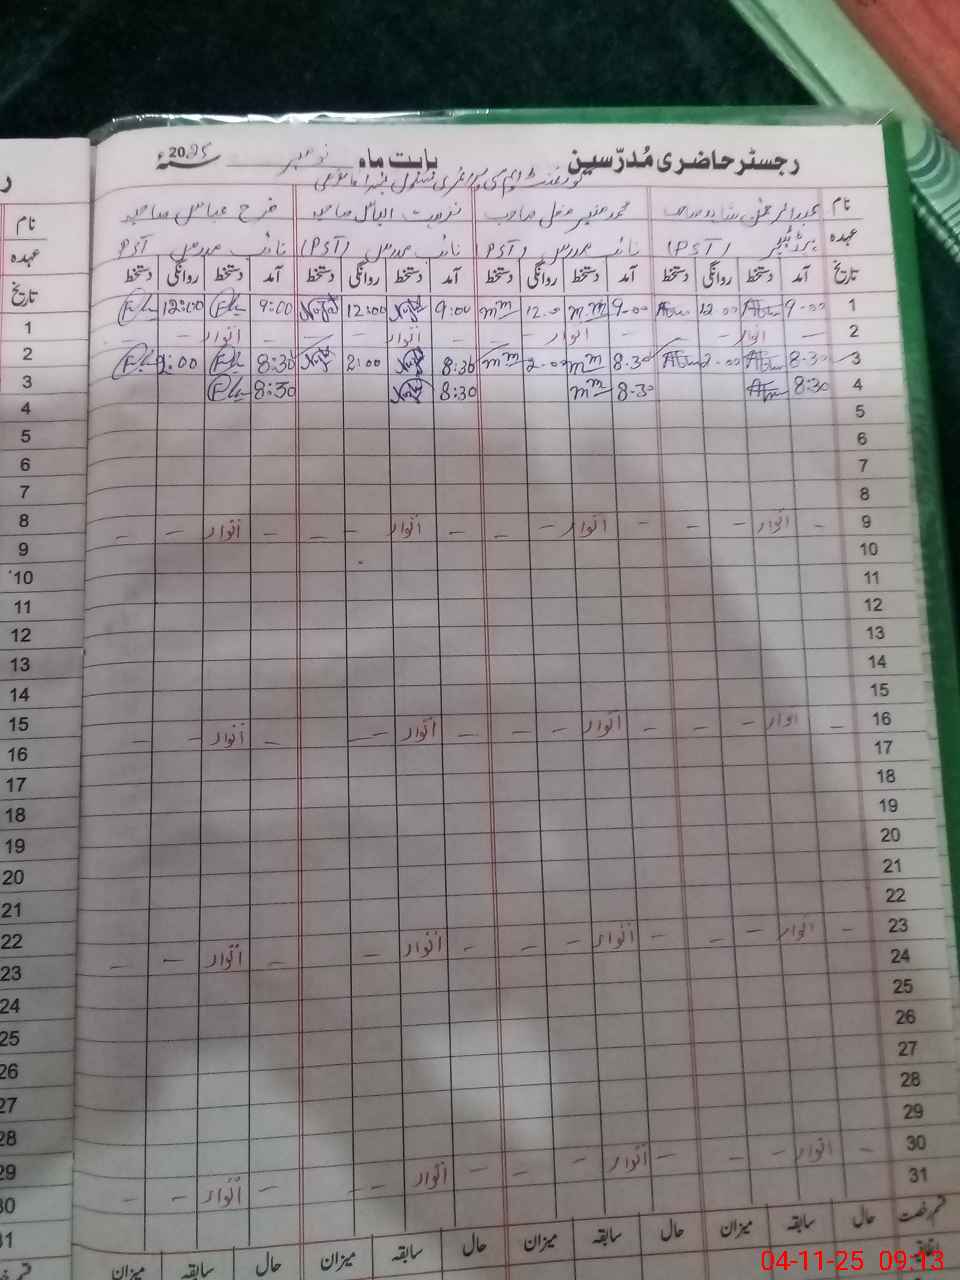 رجسٹر حاضری مُدرّسین بابت ماہ نومبر 2025ء
نام عبدالرحمٰن صاحب محمد منیر مغل صاحب نزہت الیاس صاحبہ فرح عباس صاحبہ
عہدہ (PST) نائب مدرس (PST نائب مدرس (PST) نائب مدرس PST
تاریخ آمد دستخط روانگی دستخط آمد دستخط روانگی دستخط آمد دستخط روانگی دستخط آمد دستخط روانگی دستخط
1 9-00 12-00 9-00 mm 12-00 mm 9:00 12:00 9:00 12:00
2 – اتوار – – اتوار – – اتوار – – اتوار –
3 8-30 2-00 8-30 mm 2-00 mm 8:30 2:00 8:30 2:00
4 8:30 8-30 mm 8:30 8:30
5
6
7
8
9 – اتوار – – – اتوار – – – اتوار – – – اتوار – –
10
11
12
13
14
15
16 – اتوار – – – اتوار – – – اتوار – – – اتوار – –
17
18
19
20
21
22
23 – اتوار – – – اتوار – – – اتوار – – اتوار – –
24
25
26
27
28
29
30 – اتوار – – – اتوار – – – اتوار – – – اتوار – –
31
قسم رخصت حال سابقہ میزان حال سابقہ میزان حال سابقہ میزان حال سابقہ میزان
نام
عہدہ
تاریخ
1
2
3
4
5
6
7
8
9
10
11
12
13
14
15
16
17
18
19
20
21
22
23
24
25
26
27
28
29
30
31
04-11-25 09:13